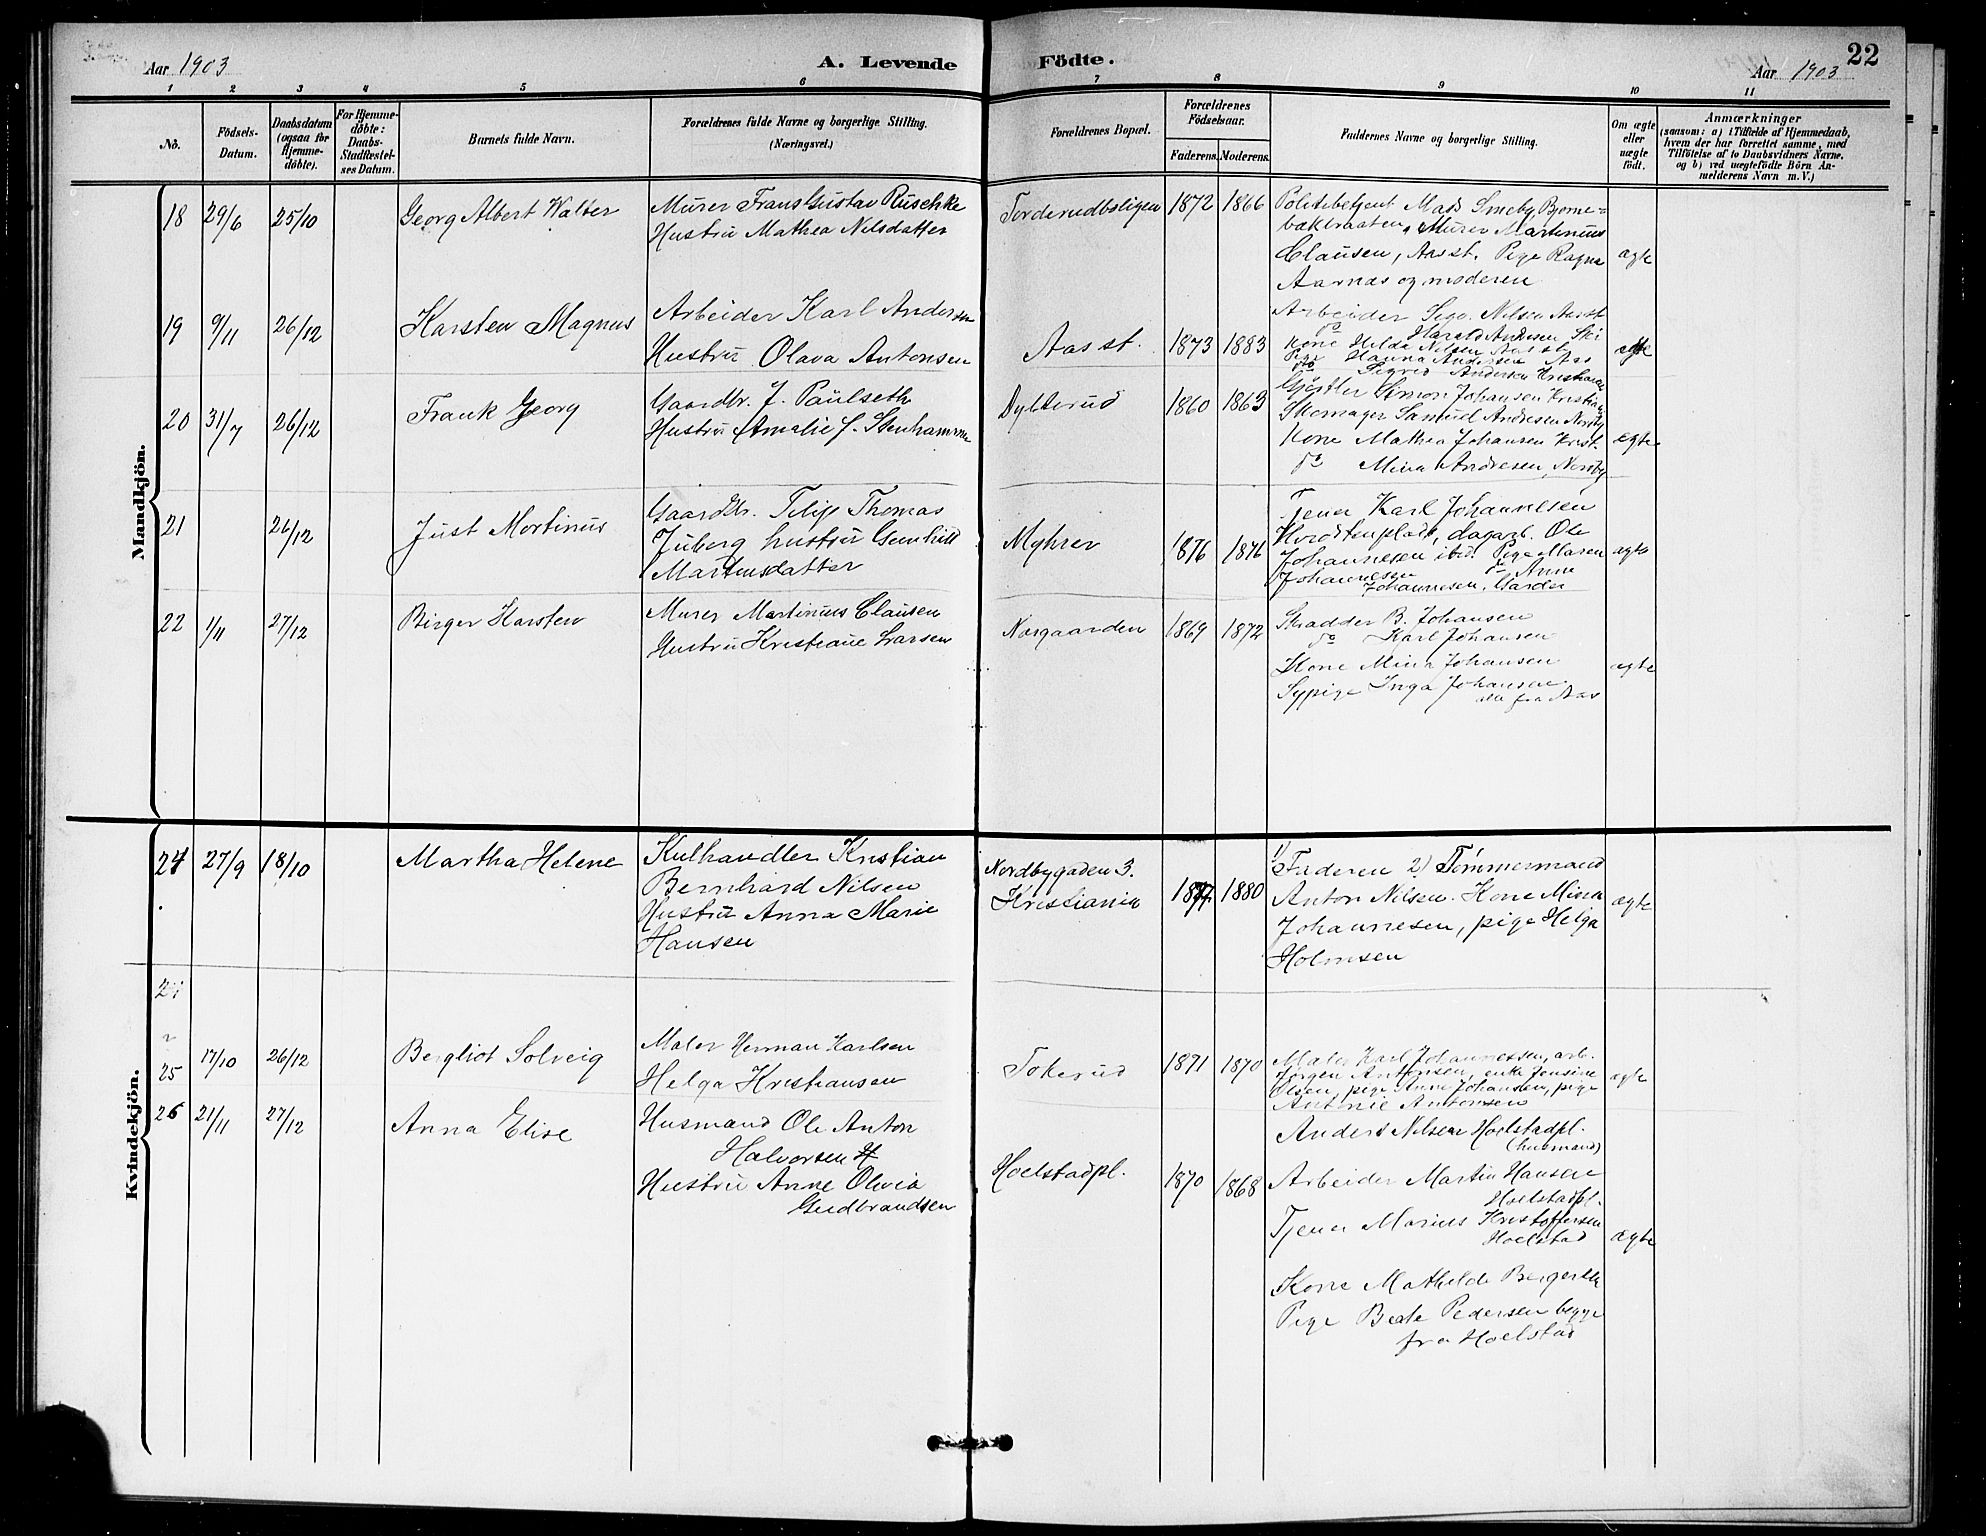 Aar 1903
A. Levende
Födte.
22
Aar 1903
1 2 3 4 5 6 7 8 9 10 11
No.
Födsels-
Datum.
Daabsdatum
(ogsaa for
Hjemme-
döbte).
For Hjemme-
döbte:
Daabs-
Stadfæstel-
ses Datum.
Barnets fulde Navn.
Forældrenes fulde Navne og borgerlige Stilling.
(Næringsvei.)
Forældrenes Bopæl.
Forældrenes
Födselsaar.
Faderens. Moderens.
Faddernes Navne og borgerlige Stilling.
Om ægte
eller
uægte
födt.
Anmærkninger
(saasom: a) i Tilfælde af Hjemmedaab,
hvem der har forrettet samme, med
Tilföielse af to Daabsvidners Navne.
og b) ved uægtefödte Börn An-
melderens Navn m. V.)
Mandkjön.
18 29/6 25/10
Georg Albert Walter
Murer Frans Gustav Ruschke
Hustru Mathea Nilsdatter
Torderudboligen
1872 1866
Politibetjent Mads Smeby Bjørne-
bækbraaten, Murer Martinius
Clausen, Aas st. Pige Ragna
Aarnas og moderen
ægte
19 9/11 26/12
Karsten Magnus
Arbeider Karl Andersen
Hustru Olava Antonsen
Aas st.
1873 1883
Arbeider Sigv. Nilsen Aas st
do Harald Andersen Ski
Kone Hilda Nilsen Aas st
Pige Hanna Andersen Aas
do Sigrid Andersen Kristiania
ægte
20 31/7 26/12
Frank Georg
Gaardbr. J. Paulseth
Hustru Amalie J. Stenhammer
Dybterud
1860 1863
Gjørtler Simon Johansen Kristiania
Skomager Samuel Andresen Nordby
Kone Mathea Johansen Krist.
do Mina Andresen, Nordby
ægte
21 26/12
Just Mortinus
Gaardbr. Filip Thomas
Juberg hustru Gunhild
Martinsdatter
Myhrer
1876 1876
Tjener Karl Johannesen
dagarb. Ole
Johannesen ibid. Pige Maren
Johannesen do Anne
Johannesen, Garder
ægte
22 1/11 27/12
Birger Karsten
Murer Martinius Clausen
Hustru Kristiane Larsen
Norgaarden
1869 1872
Skradder B. Johansen
do Karl Johansen
Kone Mina Johansen
Sypige Inga Johansen
alle fra Aas
ægte
Kvindekjön.
24 27/9 18/10
Martha Helene
Kulhandler Kristian
Bernhard Nilsen
Hustru Anna Marie
Hansen
Nordbygaden 3.
Kristiania
1880
1) Faderen 2) Tømmermand
Anton Nilsen. Kone Mina
Johannesen, pige Helga
Holmsen
ægte
24
25 17/10 26/12
Bergliot Solveig
Maler Herman Karlsen
Helga Kristiansen
Tokerud
1871 1870
Maler Karl Johannessen, arb.
Jørgen Antonsen, enke Jensine
Olsen, pige Anna Johansen, pige
Antonie Antonsen
ægte
26 21/11 27/12
Anna Elise
Husmand Ole Anton
Halvorsen
Hustru Anne Olivia
Gudbrandsen
Hoelstadpl.
1870 1868
Anders Nilsen Hoelstadpl.
(husmand)
Arbeider Martin Hansen
Hoelstadpl.
Tjener Marius Kristoffersen
Hoelstad
Kone Mathilde
Pige Beate Pedersen begge
fra Hoelstad
ægte